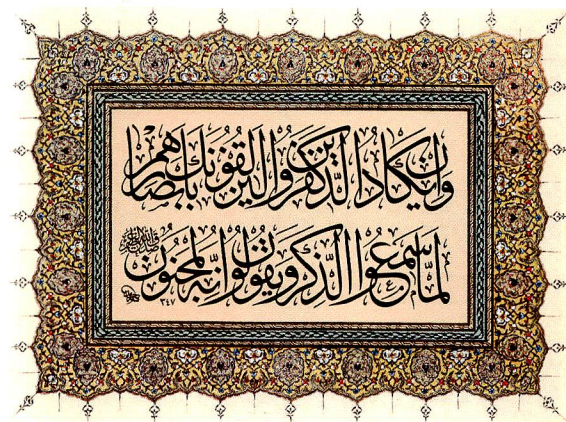 وَاِنْ يَكَادُ الَّذِينَ كَفَرُوا لَيُزْلِقُونَكَ بِاَبْصَارِهِمْ
لَمَّا سَمِعُوا الذِّكْرَ وَيَقُولُونَ اِنَّهُ لَمَجْنُونٌ
٣٤٧